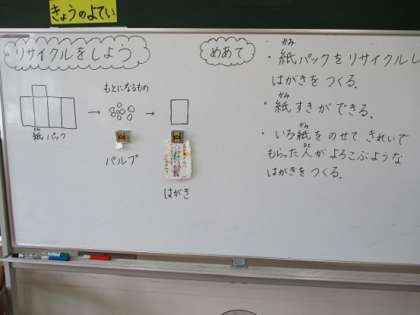 きょうのよてい
リサイクルをしよう
紙パック
かみ
→
もとになるもの
パルプ
→
はがき
めあて
かみ
・紙パックをリサイクルし
はがきをつくる。
かみ
・紙すきができる。
がみ
・いろ紙をのせて きれいで
ひと
もらった人がよろこぶような
はがきをつくる。